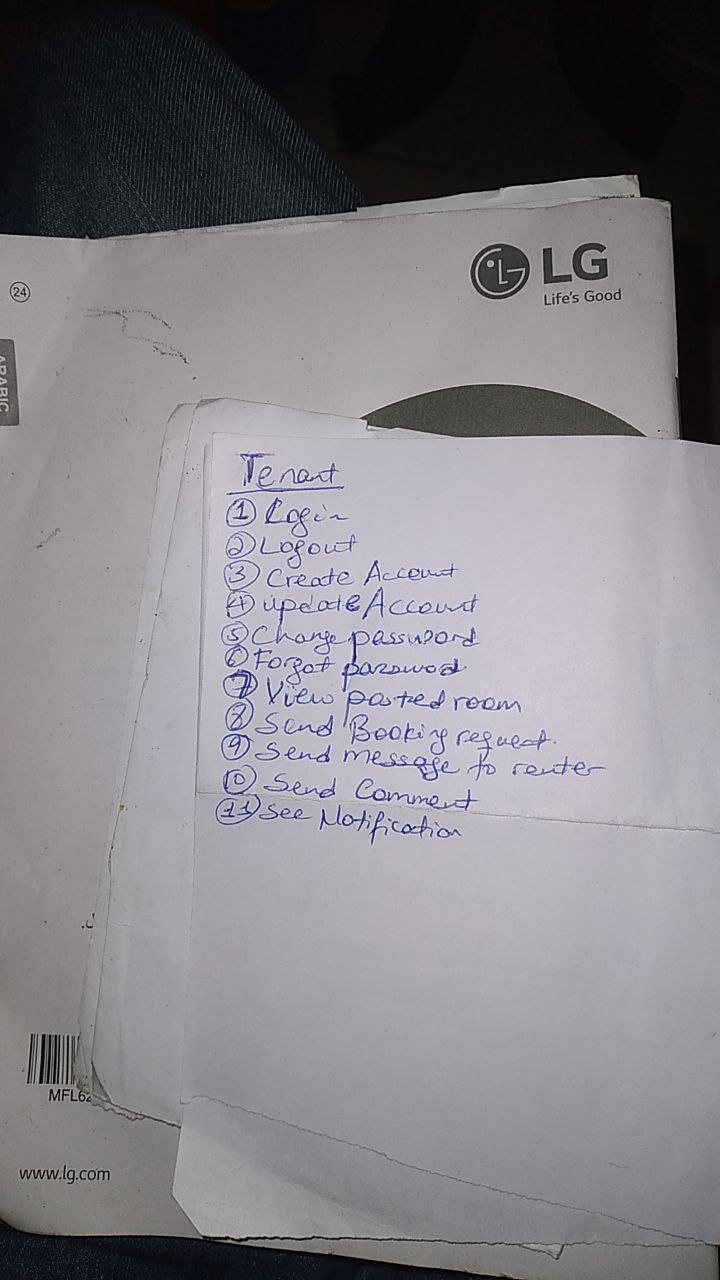 24
ARABIC
LG
Life's Good
Tenant
1 Login
2 Logout
3 Create Account
4 update Account
5 Change password
6 Forgot password
7 View posted room
8 Send Booking request.
9 Send message to renter
10 Send Comment
11 See Notification
MFL62
www.lg.com